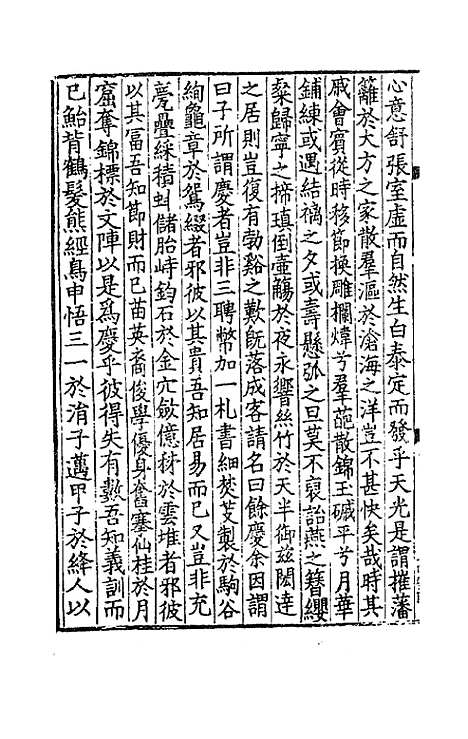 心意舒張室虛而自然生白泰定而發乎天光是謂摧藩
籬於大方之家散羣漚於滄海之洋豈不甚快矣哉時其
戚會賓從時移節換雕欄煒兮羣葩散錦玉碱平兮月華
鋪練或遇結褵之夕或壽懸弧之旦莫不裒詒燕之簪纓
粲歸寧之褅瑱倒壺觴於夜永響絲竹於天半御兹閎達
之居則豈復有勃谿之歎旣落成客請名曰餘慶余因謂
曰子所謂慶者豈非三聘幣加一札書細焚芰製於駒谷
絢龜章於鴛綴者邪彼以其貴吾知居易而已又豈非充
甍疊綵積虯儲胎峙鈞石於金穴斂億材於雲堆者邪彼
以其富吾知節財而已苗英裔俊學優身奮搴仙桂於月
窟奪錦標於文陣以是爲慶乎彼得失有數吾知義訓而
已鮐背鶴髮熊經鳥申悟三一於涓子邁甲子於絳人以